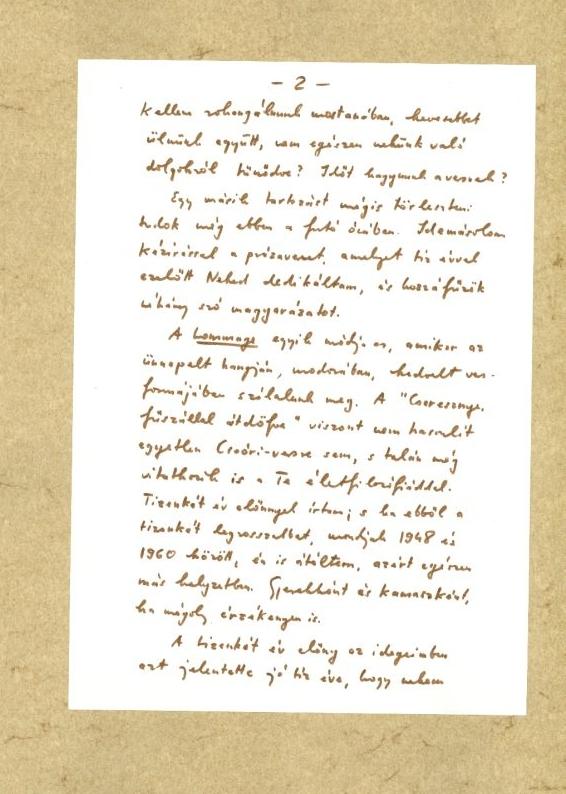 - 2 -
kellene rohangálnunk mostanában, kevesebbet
ülnünk együtt, nem egészen nekünk való
dolgokról tűnődve? Időt hagynunk a versnek?
Egy másik tartozást mégis törleszteni
tudok még ebben a futó órában. Idemásolom
kézírással a prózaverset, amelyet tíz évvel
ezelőtt Neked dedikáltam, és hozzáfűzök
néhány szó magyarázatot.
A hommage egyik módja az, amikor az
ünnepelt hangján, modorában, kedvelt vers-
formájában szólalunk meg. A "Cseresznye-
fűszállal átdöfve" viszont nem hasonlít
egyetlen Csoóri-versre sem, s talán még
vitatkozik is a Te életfilozófiáddal.
Tizenkét év előnnyel írtam; s ha ebből a
tizenkét legrosszabbat, mondjuk 1948 és
1960 között, én is átéltem, azért egészen
más helyzetben. Gyerekként és kamaszként,
ha mégoly érzékenyen is.
A tizenkét év előny az idegeimben
azt jelentette jó tíz éve, hogy nekem